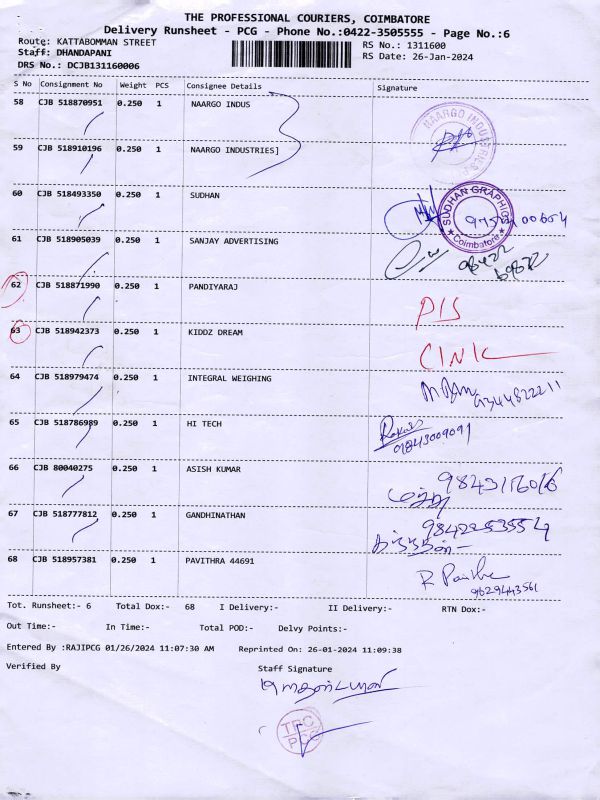 THE PROFESSIONAL COURIERS, COIMBATORE
Delivery Runsheet - PCG - Phone No.:0422-3505555 - Page No.:6
Route: KATTABOMMAN STREET
Staff: DHANDAPANI
DRS No.: DCJB131160006
RS No.: 1311600
RS Date: 26-Jan-2024
S No Consignment No Weight PCS Consignee Details Signature
58 CJB 518870951 0.250 1 NAARGO INDUS
NAARGO INDUSTRIES
59 CJB 518910196 0.250 1 NAARGO INDUSTRIES]
60 CJB 518493350 0.250 1 SUDHAN
SUDHAN GRAPHICS
Coimbatore
61 CJB 518905039 0.250 1 SANJAY ADVERTISING
98422
62 CJB 518871990 0.250 1 PANDIYARAJ
PIS
63 CJB 518942373 0.250 1 KIDDZ DREAM
CINK
64 CJB 518979474 0.250 1 INTEGRAL WEIGHING
9344822211
65 CJB 518786989 0.250 1 HI TECH
9843009091
66 CJB 80040275 0.250 1 ASISH KUMAR
67 CJB 518777812 0.250 1 GANDHINATHAN
68 CJB 518957381 0.250 1 PAVITHRA 44691
9629443561
Tot. Runsheet:- 6 Total Dox:- 68 I Delivery:- II Delivery:- RTN Dox:-
Out Time:- In Time:- Total POD:- Delvy Points:-
Entered By :RAJIPCG 01/26/2024 11:07:30 AM Reprinted On: 26-01-2024 11:09:38
Verified By Staff Signature
TPC
PCG